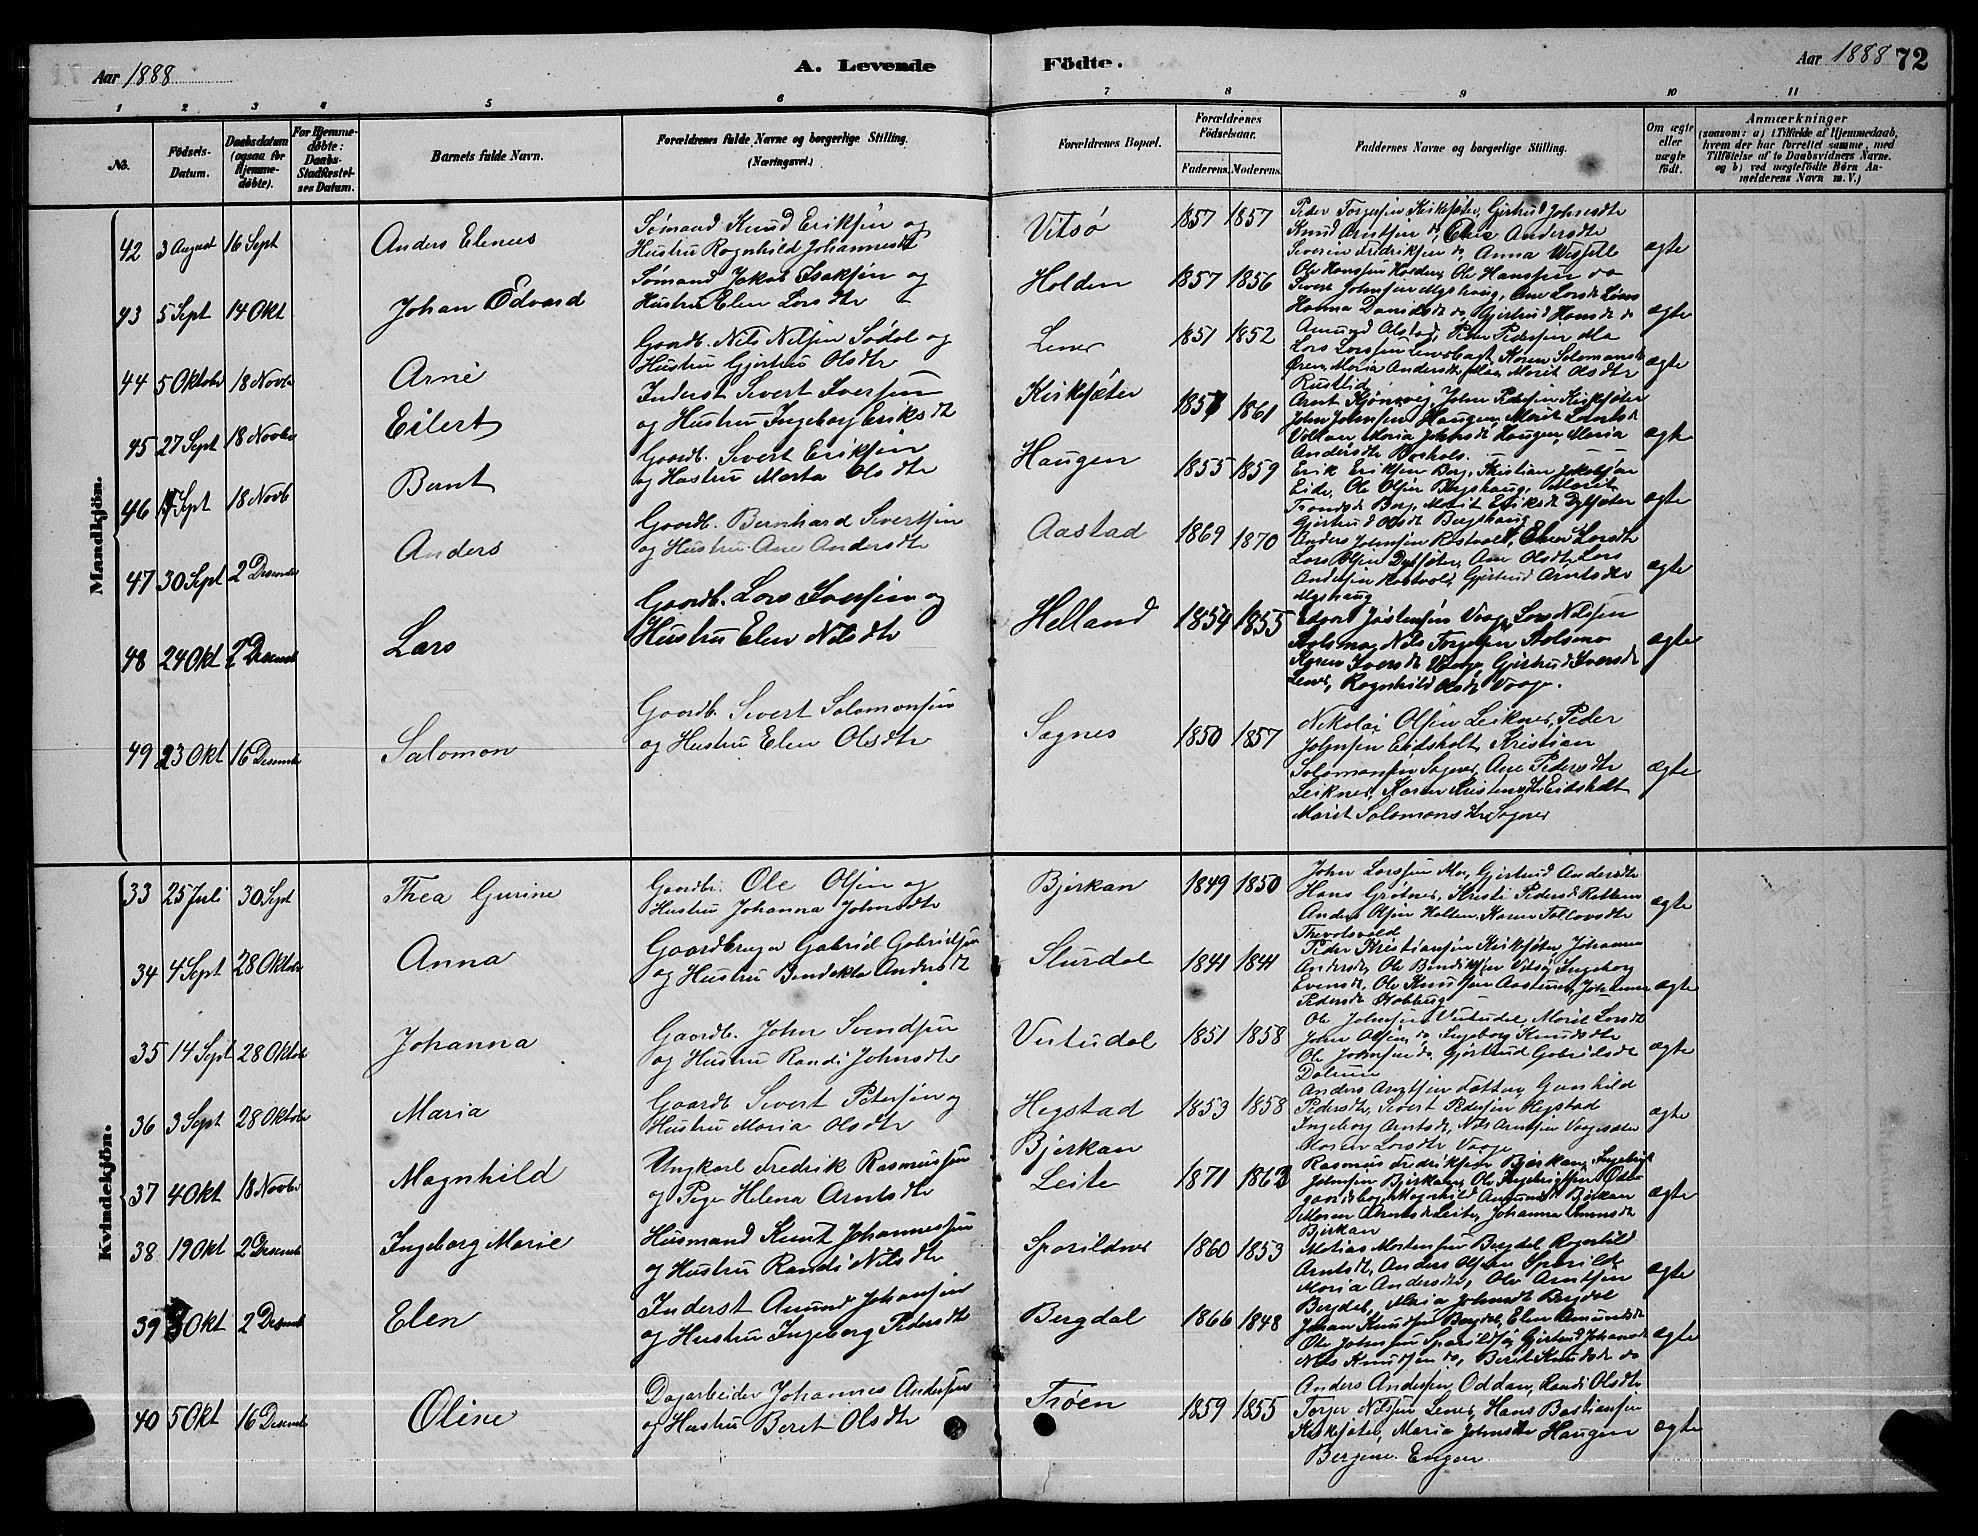 Aar 1888
A. Levende
Födte.
Aar 1888 72
1 2 3 4 5 6 7 8 9 10 11
No.
Födsels-
Datum.
Daabsdatum
(ogsaa for
Hjemme-
döbte).
For Hjemme-
döbte:
Daabs-
Stadfæstel-
ses Datum.
Barnets fulde Navn.
Forældrenes fulde Navne og borgerlige Stilling.
(Næringsvei.)
Forældrenes Bopæl.
Forældrenes
Födselsaar.
Faderens. Moderens.
Faddernes Navne og borgerlige Stilling.
Om ægte
eller
uægte
födt.
Anmærkninger
(saasom: a) i Tilfælde af Hjemmedaab,
hvem der har forrettet samme, med
Tilföielse af to Daabsvidners Navne.
og b) ved uægtefödte Börn An-
melderens Navn m. V.)
Mandkjön.
42 3 August 16 Sept Anders Elenus
Sømand Knud Eriksen og
Hustru Ragnhild Johannesdt
Vitsø 1857 1857
Peder Torgersen Kirksæter, Gjertrud Johnsdtr
Knud Arntsen do, Elen Andersdtr
Severin Fredriksen do, Anna Wisfelt
ægte
43 5 Sept 14 Okt Johan Edvard
Sømand Jakob Isaksen og
Hustru Elen Larsdtr
Holden 1857 1856
Ole Hanssen Holden, Ole Hanssen do
Sivert Johnsen Myshaug, Ane Larsdt
Hanna Danielsdt do, Gjertrud Hansdt do
ægte
44 5 Oktobr 18 Novbr Arne
Gaardb. Nils Nilsen Sødal og
Hustru Gjertru Olsdtr
Lener 1851 1852
Amund Alstad, Peder Pedersen Mo
Lars Larssen Lenesbagt, Karen Solomonsdt
Øren, Maria Andersdt Moe, Marit Olsdtr
Rustlid
ægte
45 27 Sept 18 Novbr Eilert
Inderst Sivert Iversen
og Hustru Ingeborg Eriksdt
Kirksæter 1857 1861
Arnt Kjønsvig, John Pedersen Kirksæter
John Johnsen Haugen, Marit Larsdt
Maria Johnsdt Haugen, Maria
Andersdt
ægte
46 Sept 18 Novb Bernt
Gaardb. Sivert Eriksen
og Hustru Marta Olsdtr
Haugen 1855 1859
Erik Eriksen Berg, Kristian Jakobsen
Eide, Ole Olsen Bergshaug, Marit
Trondsdt Berg, Marit Eriksdt
Gjertrud Olsdt Bergshaug
ægte
47 30 Sept 2 Desemb Anders
Gaardb. Bernhard Sivertsen
og Hustru Ane Andersdtr
Aastad 1869 1870
Anders Johnsen Rostvold, Elen Larsdtr
Lars Olsen, Ane Olsdtr, Lars
Andersen Rostvold, Gjertrud Arntsdtr
Myshaug
ægte
48 24 Okt 2 Desemb Lars
Gaardb. Lars Iversen og
Hustru Elen Nilsdtr
Helland 1854 1855
Edvart Jostensen Vaage, Lars Nilsen
Aalsmo, Nils Torgersen Aalsmo
Karen Iversdt Vaage, Gjertrud Iversdt
Lener, Ragnhild Olsdt Vaage.
ægte
49 23 Okt 16 Desemb Salomon
Gaardb. Sivert Solomonsen
og Hustru Elen Olsdtr
Sagnes 1850 1857
Nikolai Olsen Leiknes, Peder
Johnsen Eidsholt, Kristian
Solomonsen Sagnes, Ane Pedersdtr
Leiknes, Karen Kristensdt Eidsholt
Marit Solomonsdtr Sagnes
ægte
Kvindekjön.
33 25 Juli 30 Sept Thea Gurine
Gaardbr. Ole Olsen og
Hustru Johanna Johnsdtr
Bjerkan 1849 1850
John Larssen Moe, Gjertrud Andersdtr
Hans Grötnes, Kristi Pedersdt
Anders Olsen Holten, Karen Tollevsdtr
ægte
34 4 Sept 28 Oktobr Anna
Gaardbruger Gabriel Gabrielsen
og Hustru Bendekta Andersdt
Slurdal 1841 1841
Peder Kristiansen Kirksæter, Johanna
Andersdt, Ole Bendiksen Vitsø, Ingeborg
Evensdt, Ole Knutsen, Johanna
Pedersdt
ægte
35 14 Sept 28 Oktobr Johanna
Gaardb. John Svendsen
og Hustru Randi Johnsdtr
Vutudal 1851 1858
Ole Johnsen Vutudal, Marit Larsdt
John Olsen do, Ingeborg Knudsdtr
Ole Johnsen do, Gjertrud Gabrielsdt
ægte
36 3 Sept 28 Oktobr Maria
Gaardb Sivert Petersen og
Hustru Maria Olsdtr
Hegstad 1853 1858
Anders Arntsen, Gunhild
Pedersdtr, Sivert Pedersen Hegstad
Ingeborg Arntsdt, Nils Arntsen
Maren Larsdtr Vaage
ægte
37 4 Okt 18 Novbr Magnhild
Ungkarl Fredrik Rasmussen
og Pige Helena Arntsdtr
Bjerkan
Leite 1871 1862
Rasmus Fredriksen Bjerkan, Ingebrigt
Johnsen Bjerkan, Ole Ingebrigtsen
Magnhild Amundsdt Bjerkan
Maren Arntsdt Leite, Johanna
Bjerkan
ægte
38 19 Okt 2 Desemb Ingeborg Marie
Husmand Knut Johannessen
og Hustru Randi Nilsdtr
Sporildnes 1860 1853
Matias Mortensen Bergdal, Ragnhild
Arntsdt, Anders Olsen Sporild
Maria Andersdtr, Ole Arntsen
Bergdal, Maria Johnsdt Bergdal
ægte
39 Okt 2 Desemb Elen
Inderst Amund Johansen
og Hustru Ingeborg Pedersdtr
Bergdal 1866 1848
Johan Knudsen Bergdal, Elen Amundsdt
Ole Johnsen, Gjertrud Johansdt
Nils Knudsen do, Beret Knudsdt do
ægte
40 5 Okt 16 Desemb Oline
Dagarbeider Johannes Andersen
og Hustru Beret Olsdtr
Trøen 1859 1855
Anders Andersen Oddan, Randi Olsdtr
Torger Nilsen Lener, Hans Bastiansen
Kirksæter, Maria Johnsdtr Haugen
Bergine Engan
ægte